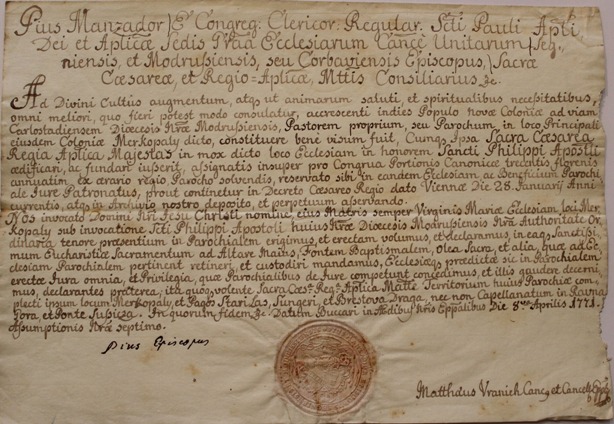 Pius Manzador E Congreg: Clericor: Regular: Scti Pauli Apli
Dei et Aplicæ Sedis Gratia Ecclesiarum Cance Unitarum Seg-
niensis, et Modrusiensis, seu Corbaviensis Episcopus, Sacræ
Cæsareæ, et Regio-Aplicæ, Mttis Consiliarius &c.
Ad Divini Cultus augmentum, atqs ut animarum saluti, et spiritualibus necessitatibus,
omni meliori, quo fieri potest modo consulatur, accrescenti indies Populo novæ Coloniæ ad viam
Carlostadiensem Diœcesis Nræ Modrusiensis, Pastorem proprium, seu Parochum in loco Principali
ejusdem Coloniæ Merkopaly dicto, constituere bene visum fuit, Cumqs Ipsa Sacra Cæsarea
Regia Aplica Majestas in mox dicto loco Ecclesiam in honorem Sancti Philippi Apostoli
ædificari, ac fundari jusserit, assignatis insuper pro Congrua Portionis Canonicæ trecentis florenis
annuatim ex ærario regio Parocho solvendis, reservato sibi in eandem Ecclesiam ac Beneficium Parochi-
ale Jure Patronatus, prout continetur in Decreto Cæsareo Regio dato Viennæ Die 28 Januarij Anni
currentis, atqs in Archivio nostro deposito, et perpetuum asservando.
Nos invocato Domini Nri Jesu Christi nomine, ejus Matris semper Virginis Mariæ Ecclesiam loci Mer-
kopaly sub invocatione Scti Philippi Apostoli hujus Nræ Diœcesis Modrusiensis Nra Authoritate Or-
dinaria tenore præsentium in Parochialem erigimus, et erectam volumus, et declaramus, in eaqs Sanctissi-
mum Eucharistiæ Sacramentum ad Altare Majus, Fontem Baptismalem, Olea Sacra, et alia, quæ ad Ec-
clesiam Parochialem pertinent retineri, et custodiri mandamus, Ecclesiæqs prædictæ sic in Parochialem
erectæ Jura omnia, et Privilegia, quæ Parochialibus de Jure competunt concedimus, et illis gaudere decerni-
mus, declarantes præterea, ita quoqs volente Sacra Cæs: Reg: Aplica Matte Territorium hujus Parochiæ com-
plecti ipsum locum Merkopaly, et Pagos Stari Las, Sungeri, et Brestova Draga, nec non Capellanatum in Ravna
Gora, et Ponte Sussiza. In quorum fidem &c. Datum Buccari in Ædibus Nris Eppalibus Die 8va Aprilis 1771.
Assumptionis Nræ septimo.
Pius Episcopus
Matthæus Vranich Canc, et Cancell: Eppal